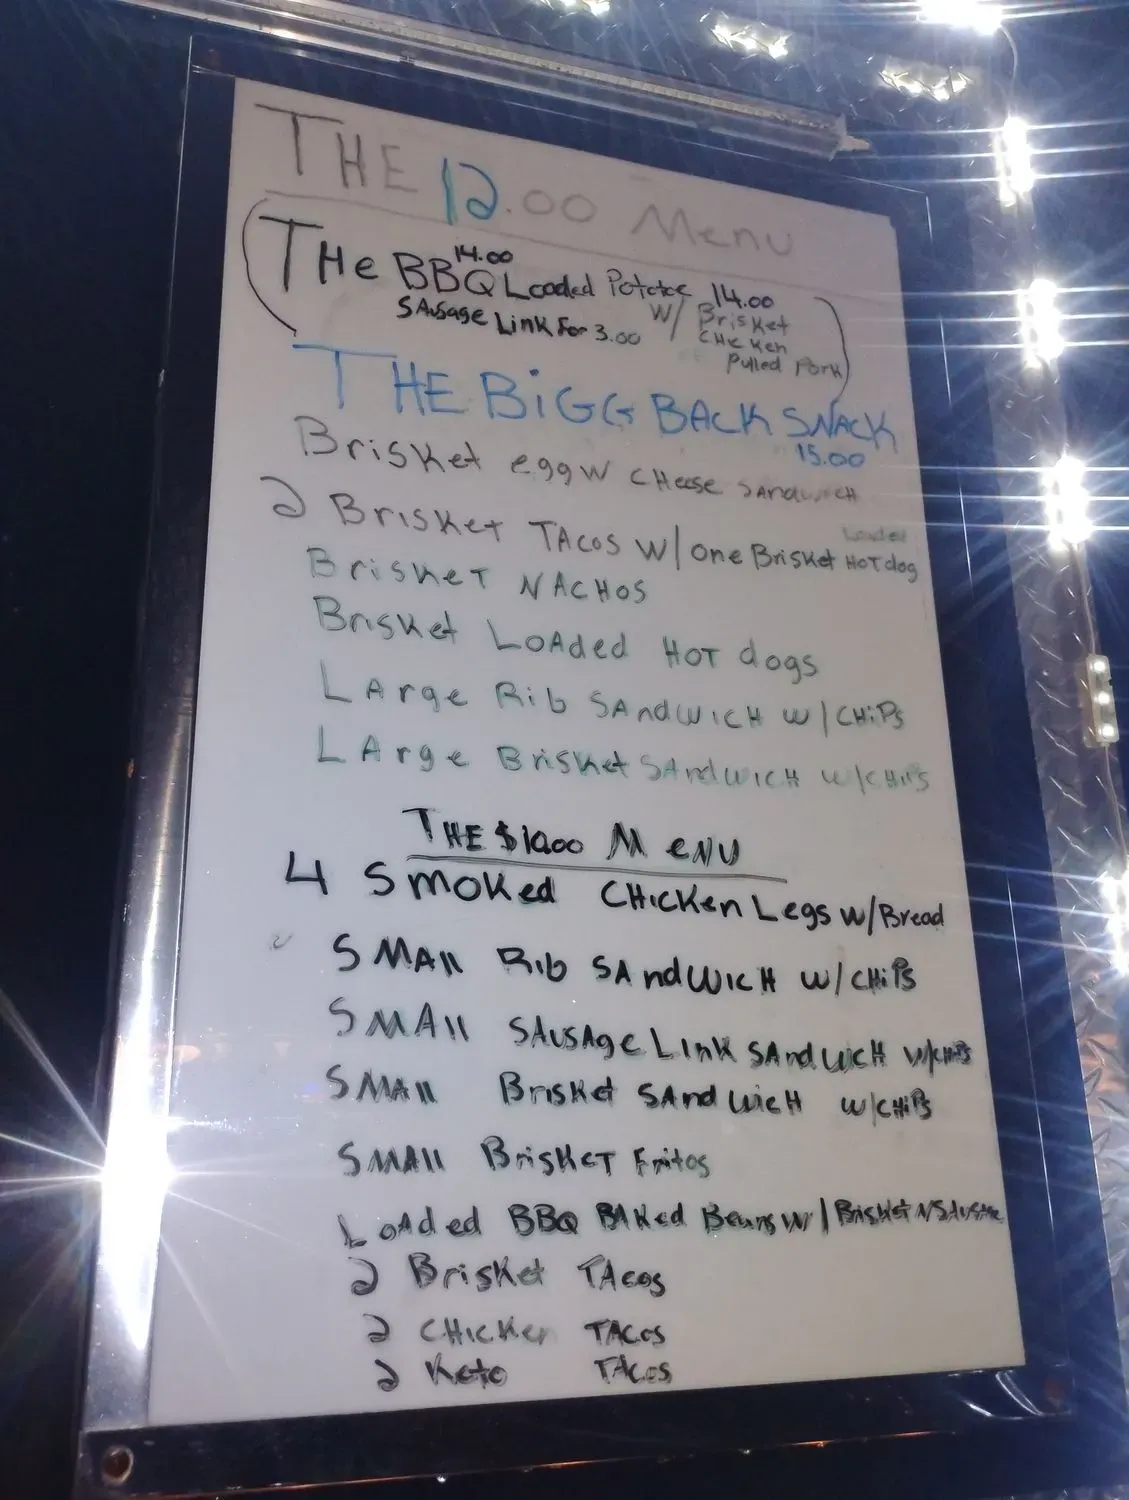 THE 12.00 Menu
14.00
THe BBQ Loaded Pototoe 14.00
SAusage Link For 3.00 W/ Brisket
CHicken
Pulled Pork
THE BiGG BACK SNACK
15.00
Brisket egg W CHeese SAndwicH
Loaded
2 Brisket TAcos W/ one Brisket HoT dog
BrisKeT NACHOS
Brisket LOAded HOT dogs
LArge Rib SAndWICH W/CHiPs
LArge Brisket SAndWICH W/CHiPs
THE $10.00 MeNU
4 SmoKed CHicKen Legs w/Bread
SMAll Rib SAndWicH w/CHiPs
SMAll SAusAge LinK SAndWicH w/CHiPs
SMAll BrisKet SAndWicH w/CHiPs
SMAll BrisKeT Fritos
LoAded BBQ BAKed Beans W/BrisKet N SAusAge
2 BrisKet TAcos
2 CHicKen TAcos
2 Keto TAcos